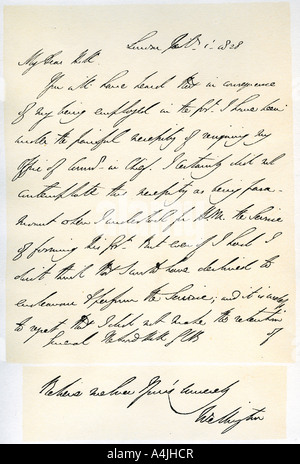 London Feb 1. 1828
My Dear Hill.
You will have heard that in consequence
of my being employed in the Govt. I have been
under the painful necessity of resigning my
Office of Commr in Chief. I certainly did not
contemplate this necessity as being para-
mount when I undertook for H.M. the Service
of forming his Govt. But even if I had I
don't think that I could have declined to
endeavour to perform the Service; and it is
to regret that I did not make the retention
of
General Lord Hill GCB
Believe me Ever Yours sincerely
Wellington
alamy
Image ID: A4JHCR
www.alamy.com